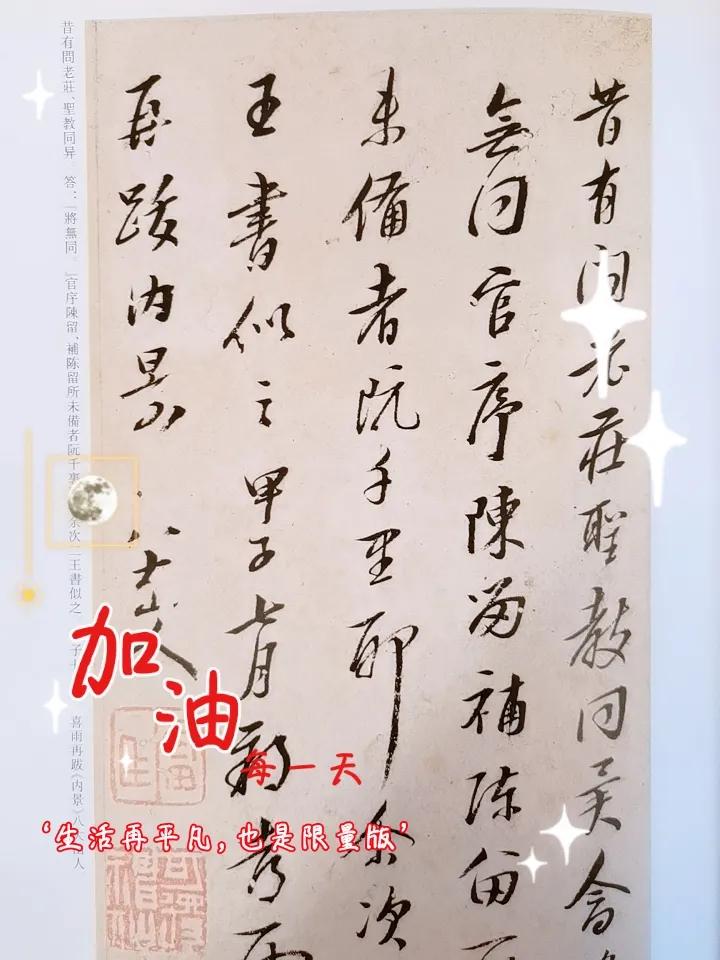 昔有問老莊聖教同異答
無同官序陳留補陳留
未備者阮千里耶余次
王書似之甲子七月朔喜雨
再跋内景 八大山人
昔有問老莊、聖教同异。答:「將無同。」官序陳留、補陈留所未備者阮千 余次二王書似之 子 喜雨再跋《内景》八 人
加油
每一天
‘生活再平凡，也是限量版’